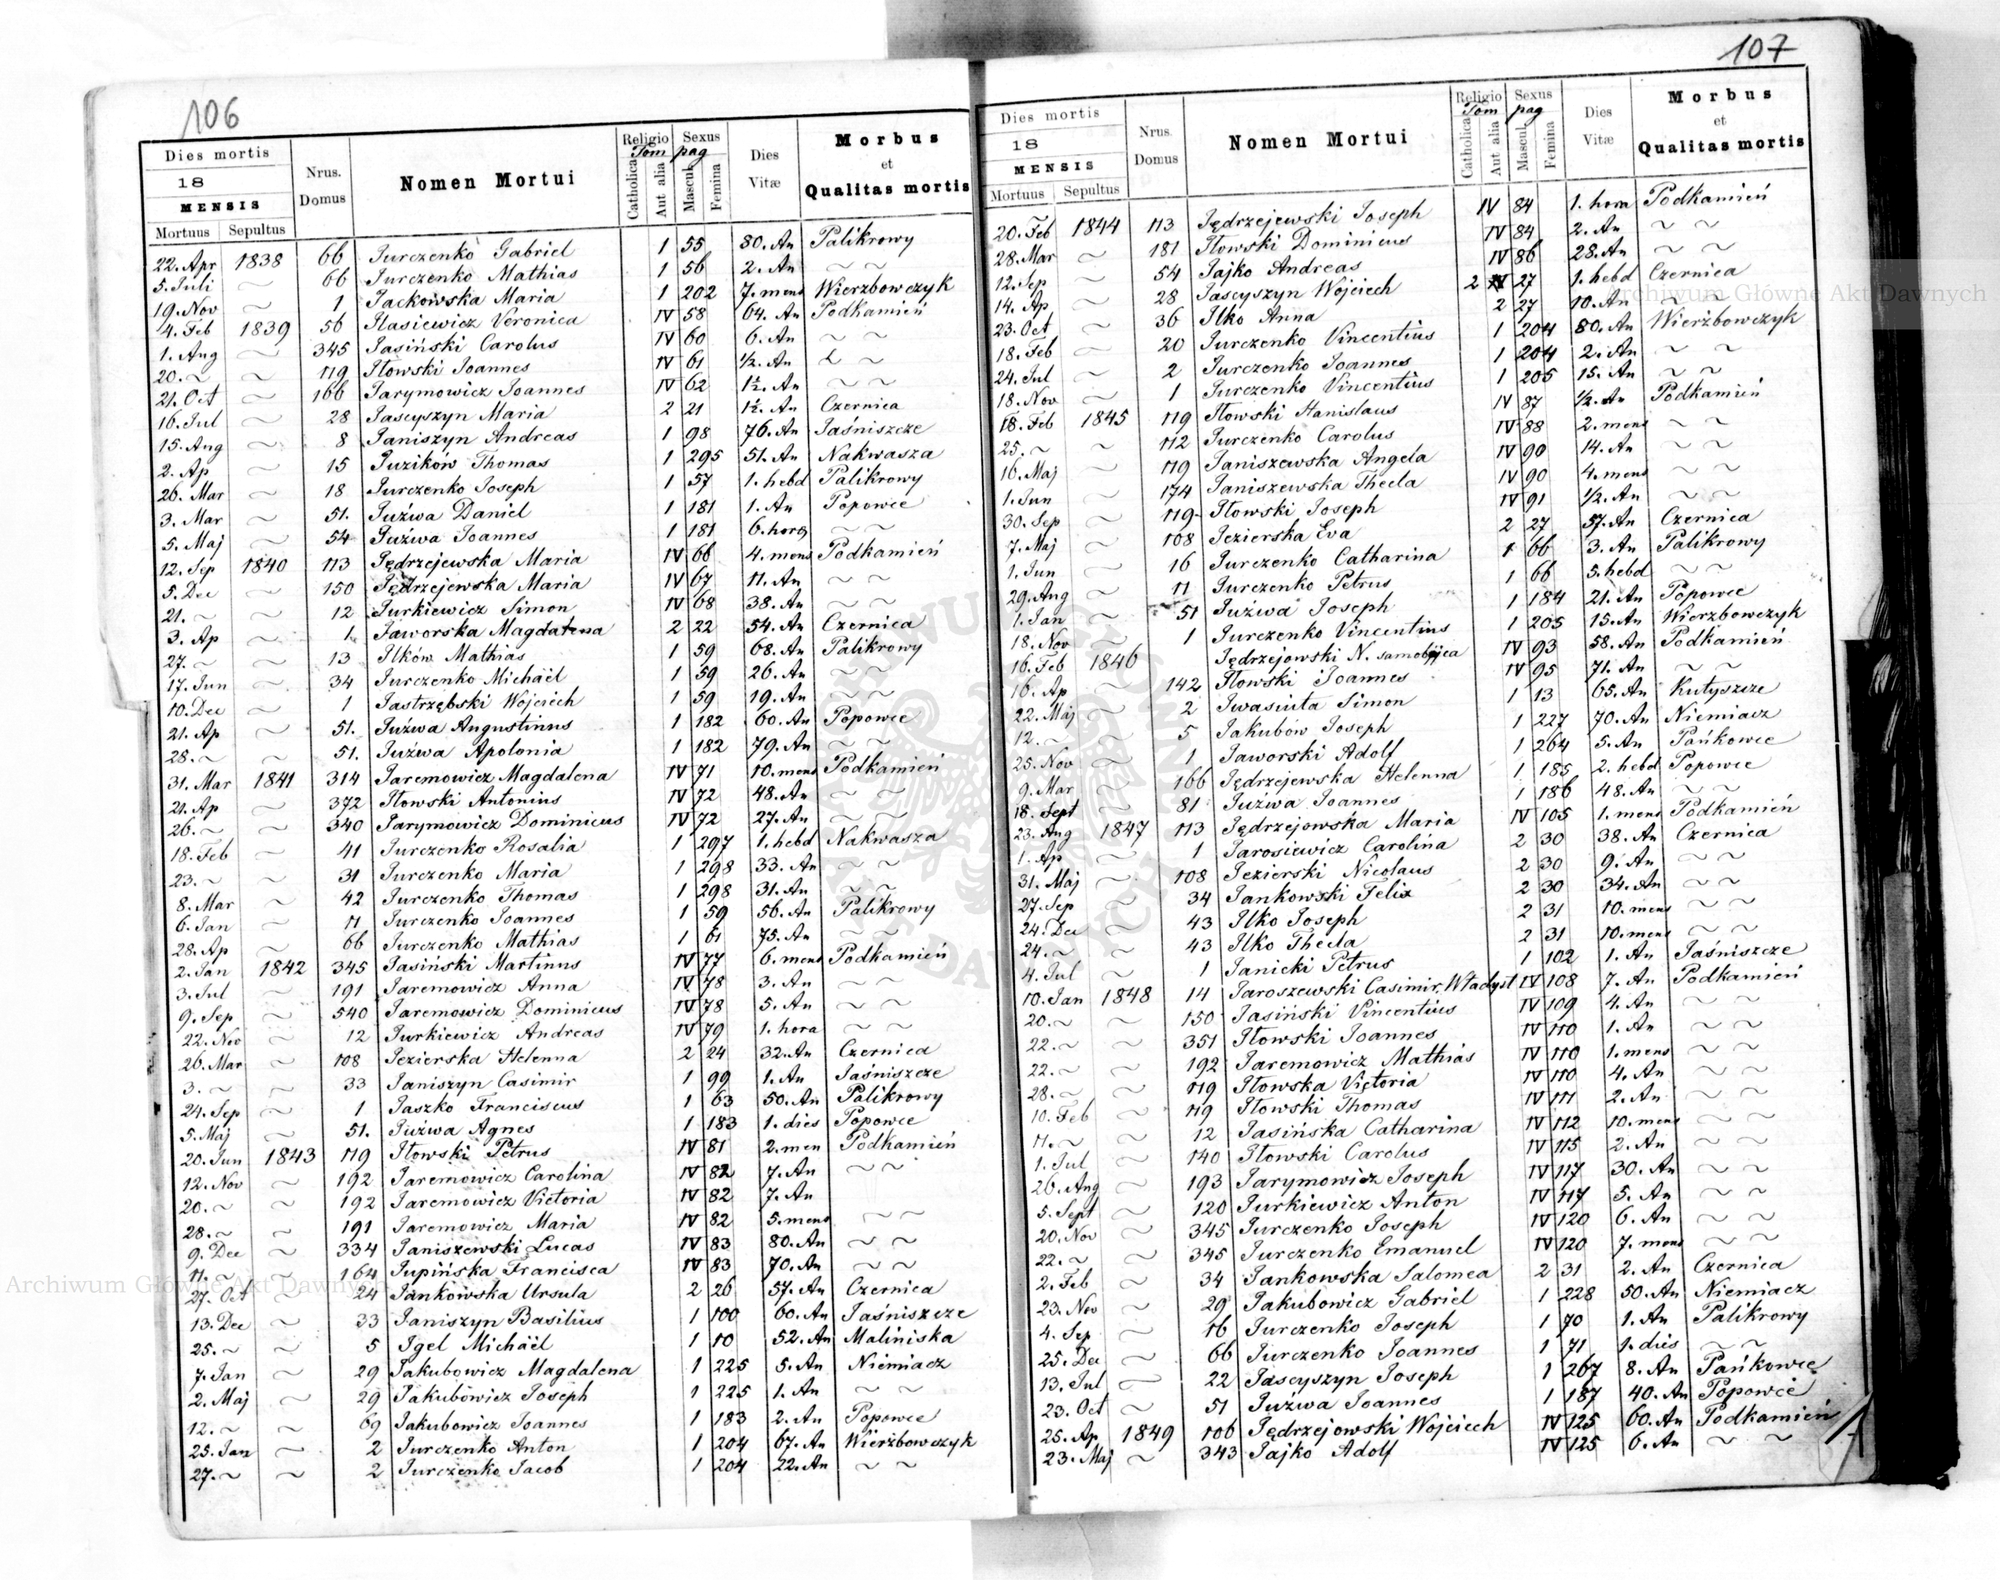 106
Dies mortis
18
MENSIS
Mortuus Sepultus
Nrus. Domus
Nomen Mortui
Religio
Tom
Catholica
Aut. alia
Sexus
pag
Mascul.
Femina
Dies Vitæ
Morbus
et
Qualitas mortis
22. Apr 1838 66 Jurczenko Gabriel 1 55 80. An Palikrowy
5. Juli ~ 66 Jurczenko Mathias 1 56 2. An ~ ~
19. Nov ~ 1 Jackowska Maria 1 202 7. mens Wierzbowczyk
4. Feb 1839 56 Ilasiewicz Veronica IV 58 64. An Podkamień
1. Aug ~ 345 Jasiński Carolus IV 60 6. An ~ ~
20. ~ ~ 119 Iłowski Joannes IV 61 1/2. An ~ ~
21. Oct ~ 166 Jarymowicz Joannes IV 62 1½. An ~ ~
16. Jul ~ 28 Jascyszyn Maria 2 21 1½. An Czernica
15. Aug ~ 8 Janiszyn Andreas 1 98 76. An Jaśniszcze
2. Ap ~ 15 Juzików Thomas 1 295 51. An Nakwasza
26. Mar ~ 18 Jurczenko Joseph 1 57 1. hebd Palikrowy
3. Mar ~ 51. Juźwa Daniel 1 181 1. An Popowce
5. Maj ~ 54 Juźwa Joannes 1 181 6. hora ~ ~
12. Sep 1840 113 Jędrzejewska Maria IV 66 4. mens Podkamień
5. Dec ~ 150 Jędrzejewska Maria IV 67 11. An ~ ~
21. ~ ~ 12 Jurkiewicz Simon IV 68 38. An ~ ~
3. Ap ~ 1 Jaworska Magdalena 2 22 54. An Czernica
27. ~ ~ 13 Ilków Mathias 1 59 68. An Palikrowy
17. Jun ~ 34 Jurczenko Michäel 1 59 26. An ~ ~
10. Dec ~ 1 Jastrzębski Wojciech 1 59 19. An ~ ~
21. Ap ~ 51. Juźwa Augustinus 1 182 60. An Popowce
28. ~ ~ 51. Juźwa Apolonia 1 182 79. An ~ ~
31. Mar 1841 314 Jaremowicz Magdalena IV 71 10. mens Podkamień
21. Ap ~ 372 Iłowski Antonius IV 72 48. An ~ ~
26. ~ ~ 340 Jarymowicz Dominicus IV 72 27. An ~ ~
18. Feb ~ 41 Jurczenko Rosalia 1 297 1. hebd Nakwasza
23. ~ ~ 31 Jurczenko Maria 1 298 33. An ~ ~
8. Mar ~ 42 Jurczenko Thomas 1 298 31. An ~ ~
6. Jan ~ 11 Jurczenko Joannes 1 59 56. An Palikrowy
28. Ap ~ 66 Jurczenko Mathias 1 61 75. An ~ ~
2. Jan 1842 345 Jasiński Martinus IV 77 6. mens Podkamień
3. Jul ~ 191 Jaremowicz Anna IV 78 3. An ~ ~
9. Sep ~ 540 Jaremowicz Dominicus IV 78 5. An ~ ~
22. Nov ~ 12 Jurkiewicz Andreas IV 79 1. hora ~ ~
26. Mar ~ 108 Jezierska Helenna 2 24 32. An Czernica
3. ~ ~ 33 Janiszyn Casimir 1 99 1. An Jaśniszcze
24. Sep ~ 1 Jaszko Franciscus 1 63 50. An Palikrowy
5. Maj ~ 51. Juźwa Agnes 1 183 1. dies Popowce
20. Jun 1843 119 Iłowski Petrus IV 81 2. men Podkamień
12. Nov ~ 192 Jaremowicz Carolina IV 82 7. An ~ ~
20. ~ ~ 192 Jaremowicz Victoria IV 82 7. An
28. ~ ~ 191 Jaremowicz Maria IV 82 5. mens ~ ~
9. Dec ~ 334 Janiszewski Lucas IV 83 80. An ~ ~
11. ~ ~ 164 Jupińska Francisca IV 83 70. An ~ ~
27. Oct ~ 24 Jankowska Ursula 2 26 57. An Czernica
13. Dec ~ 33 Janiszyn Basilius 1 100 60. An Jaśniszcze
25. ~ ~ 5 Igel Michäel 1 10 52. An Maliniska
7. Jan ~ 29 Jakubowicz Magdalena 1 225 5. An Niemiacz
2. Maj ~ 29 Jakubowicz Joseph 1 225 1. An ~ ~
12. ~ ~ 69 Jakubowicz Joannes 1 183 2. An Popowce
25. Jan ~ 2 Jurczenko Anton 1 204 67. An Wierżbowczyk
27. ~ ~ 2 Jurczenko Jacob 1 204 22. An ~ ~
107
Dies mortis
18
MENSIS
Mortuus Sepultus
Nrus. Domus
Nomen Mortui
Religio
Tom
Catholica
Aut. alia
Sexus
pag
Mascul.
Femina
Dies Vitæ
Morbus
et
Qualitas mortis
20. Feb 1844 113 Jędrzejewski Joseph IV 84 1. hora Podkamień
28. Mar ~ 181 Iłowski Dominicus IV 84 2. An ~ ~
12. Sep ~ 54 Jajko Andreas IV 86 28. An ~ ~
14. Ap ~ 28 Jascyszyn Wojciech 2 27 1. hebd Czernica
23. Oct ~ 36 Ilko Anna 2 27 10. An ~ ~
18. Feb ~ 20 Jurczenko Vincentius 1 204 80. An Wierżbowczyk
24. Jul ~ 2 Jurczenko Joannes 1 204 2. An ~ ~
18. Nov ~ 1 Jurczenko Vincentius 1 205 15. An ~ ~
18. Feb 1845 119 Iłowski Stanislaus IV 87 1/2. An Podkamień
25. ~ ~ 112 Jurczenko Carolus IV 88 2. mens ~ ~
16. Maj ~ 119 Janiszewska Angela IV 90 14. An ~ ~
1. Jun ~ 174 Janiszewska Thecla IV 90 4. mens ~ ~
30. Sep ~ 119 Iłowski Joseph IV 91 1/2. An ~ ~
7. Maj ~ 108 Jezierska Eva 2 27 57. An Czernica
1. Jun ~ 16 Jurczenko Catharina 1 66 3. An Palikrowy
29. Aug ~ 11 Jurczenko Petrus 1 66 5. hebd ~ ~
1. Jan ~ 51 Juźwa Joseph 1 184 21. An Popowce
18. Nov ~ 1 Jurczenko Vincentius 1 205 15. An Wierzbowczyk
16. Feb 1846 Jędrzejowski N. samobójca IV 93 58. An Podkamień
16. Ap ~ 142 Iłowski Joannes IV 95 71. An ~ ~
22. Maj ~ 2 Iwasiuta Simon 1 13 65. An Kutyszcze
12. ~ ~ 5 Jakubów Joseph 1 227 70. An Niemiacz
25. Nov ~ 1 Jaworski Adolf 1 264 5. An Pańkowce
9. Mar ~ 166 Jędrzejewska Helenna 1 185 2. hebd Popowce
18. Sept 81 Juźwa Joannes 1 186 48. An ~ ~
23. Aug 1847 113 Jędrzejowska Maria IV 105 1. mens Podkamień
1. Ap ~ 1 Jarosiewicz Carolina 2 30 38. An Czernica
31. Maj ~ 108 Jezierski Nicolaus 2 30 9. An ~ ~
27. Sep ~ 34 Jankowski Felix 2 30 34. An ~ ~
24. Dec ~ 43 Ilko Joseph 2 31 10. mens ~ ~
24. ~ ~ 43 Ilko Thecla 2 31 10. mens ~ ~
4. Jul ~ 1 Janicki Petrus 1 102 1. An Jaśniszcze
10. Jan 1848 14 Jaroszewski Casimir, Władysł IV 108 7. An Podkamień
20. ~ ~ 150 Jasiński Vincentius IV 109 4. An ~ ~
22. ~ ~ 351 Iłowski Joannes IV 110 1. An ~ ~
22. ~ ~ 192 Jaremowicz Mathias IV 110 1. mens ~ ~
28. ~ ~ 119 Iłowska Victoria IV 110 4. An ~ ~
10. Feb ~ 119 Iłowski Thomas IV 111 2. An ~ ~
11. ~ ~ 12 Jasińska Catharina IV 112 10. mens ~ ~
1. Jul ~ 140 Iłowski Carolus IV 115 2. An ~ ~
26. Aug ~ 193 Jarymowicz Joseph IV 117 30. An ~ ~
5. Sept ~ 120 Jurkiewicz Anton IV 117 5. An ~ ~
20. Nov ~ 345 Jurczenko Joseph IV 120 6. An ~ ~
22. ~ ~ 345 Jurczenko Emanuel IV 120 7. mens ~ ~
2. Feb ~ 34 Jankowska Salomea 2 31 2. An Czernica
23. Nov ~ 29 Jakubowicz Gabriel 1 228 50. An Niemiacz
4. Sep ~ 16 Jurczenko Joseph 1 70 1. An Palikrowy
25. Dec ~ 66 Jurczenko Joannes 1 71 1. dies ~ ~
13. Jul ~ 22 Jascyszyn Joseph 1 267 8. An Pańkowce
23. Oct ~ 51 Juźwa Joannes 1 187 40. An Popowce
25. Ap 1849 106 Jędrzejowski Wojciech IV 125 60. An Podkamień
23. Maj ~ 343 Jajko Adolf IV 125 6. An ~ ~
Archiwum Główne Akt Dawnych
Archiwum Główne Akt Dawnych